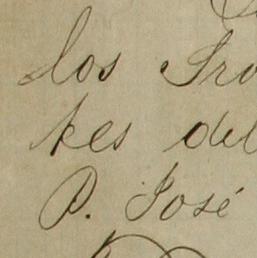 los Tro
kes del
P. José